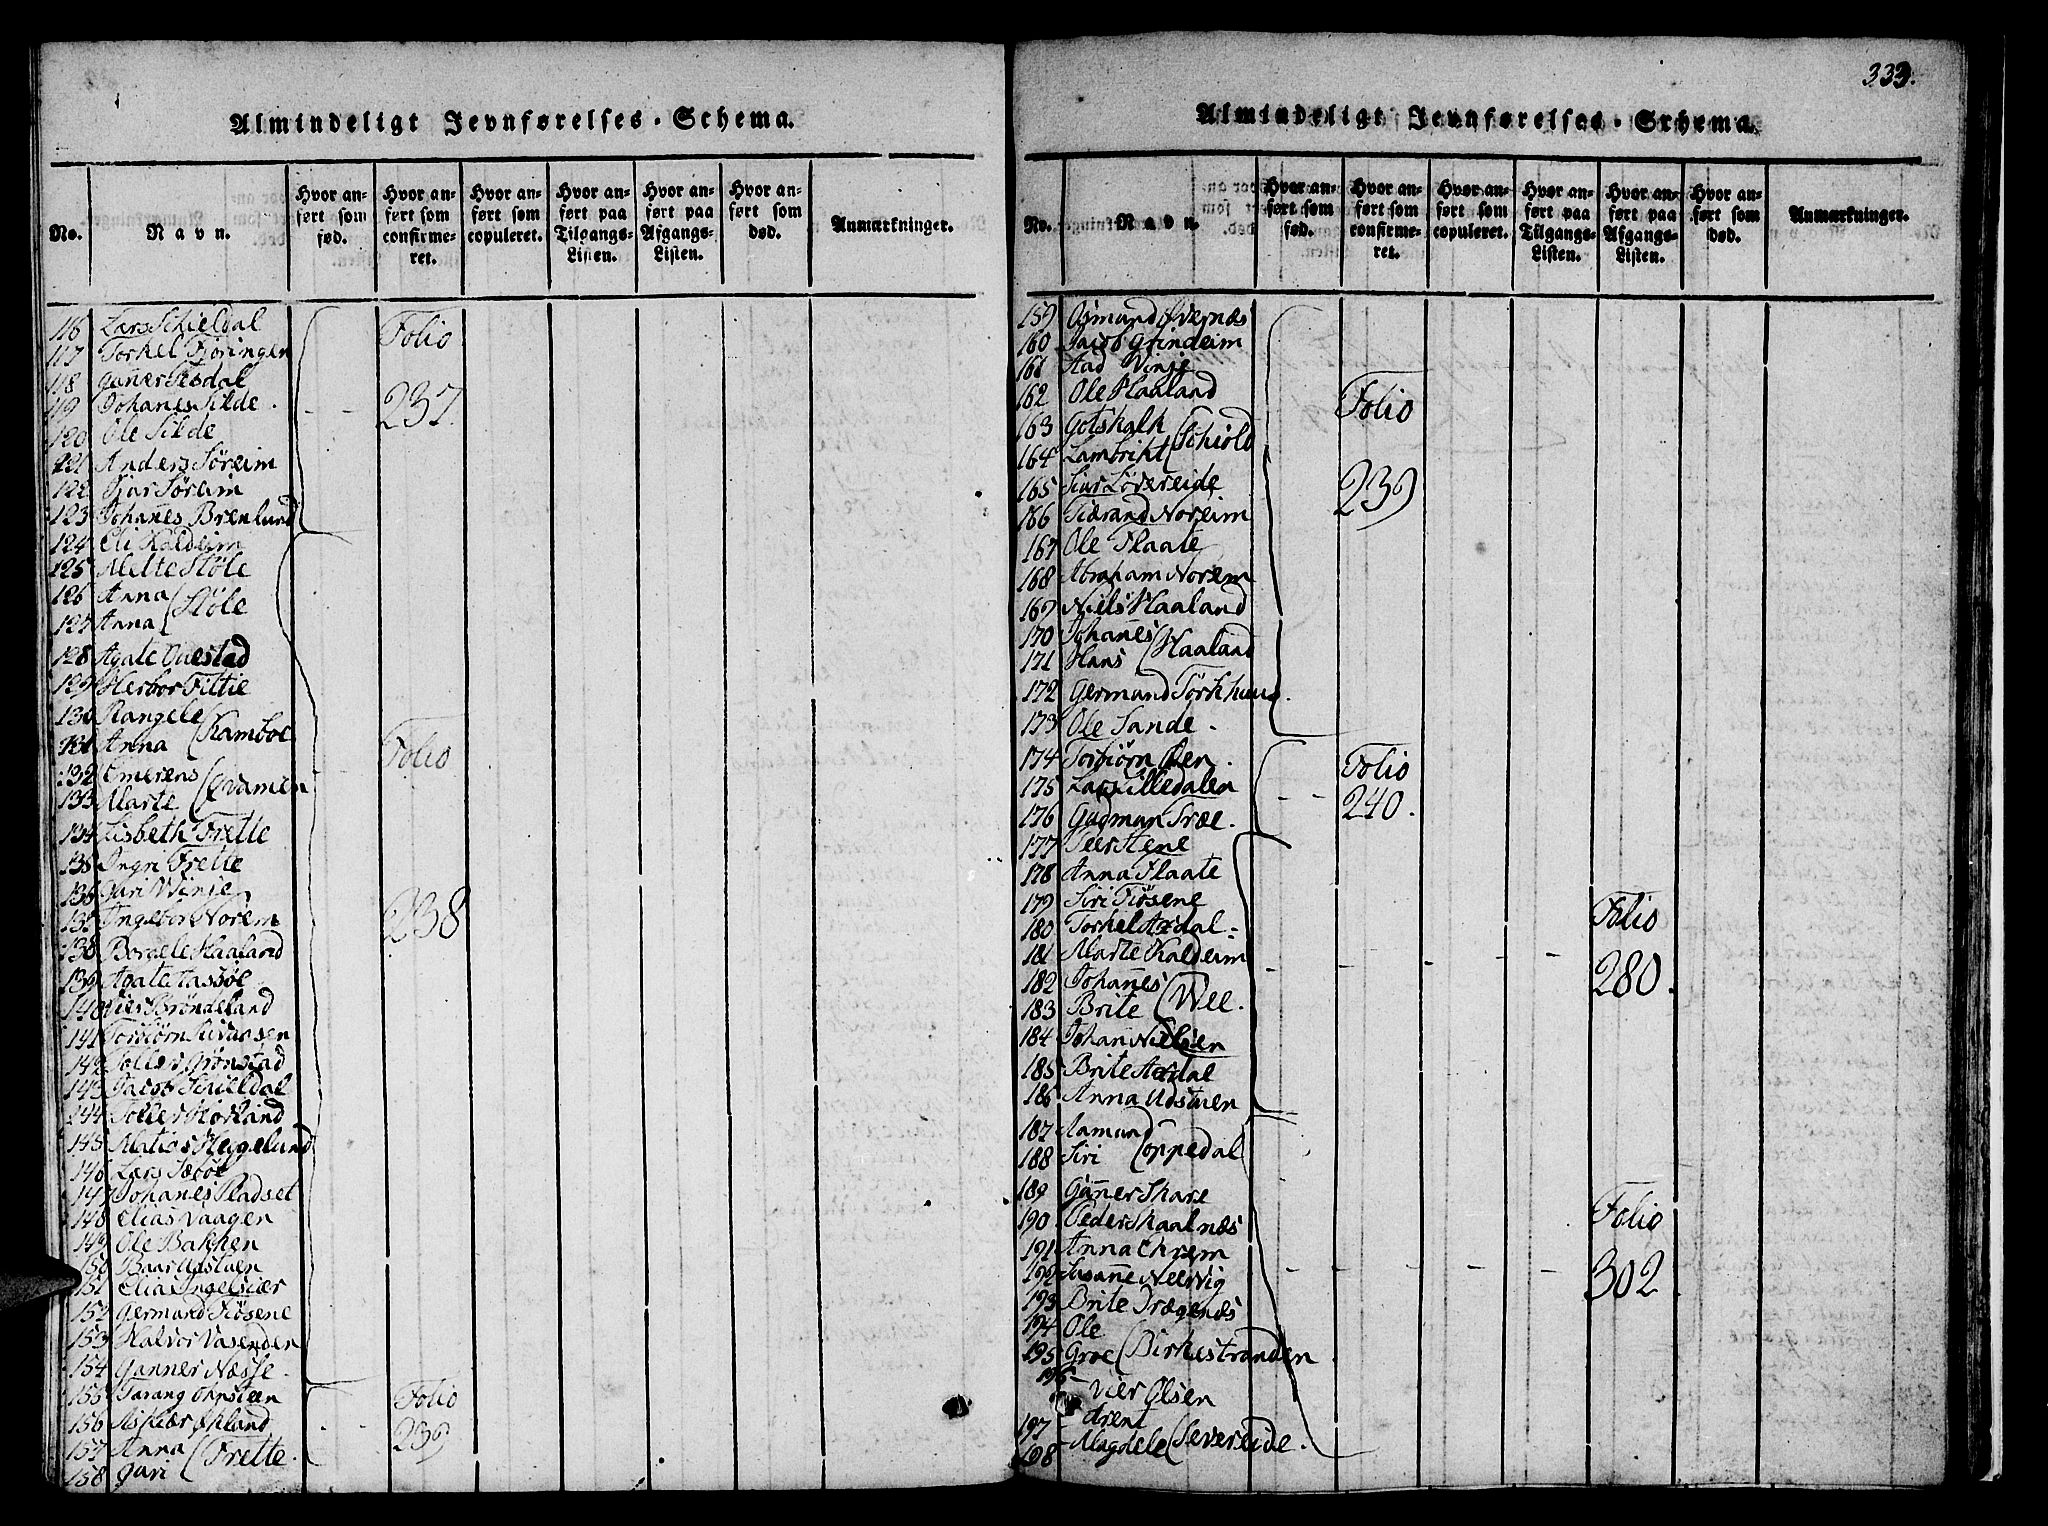 Almindeligt Jevnførelses-Schema.
No.
Navn.
Hvor anført som fød.
Hvor anført som confirmeret.
Hvor anført som copuleret.
Hvor anført paa Tilgangs-Listen.
Hvor anført paa Afgangs-Listen.
Hvor anført som død.
Anmærkninger.
116 Lars Schieldal Folio
117 Torkel Fjøringen
118 Gunner Tesdal
119 Johanes Silde. - - 237.
120 Ole Silde
121 Anders Søreim
122 Gjar Søreim
123 Johanes Brenlund
124 Eli Kaldeim
125 Mette Støle
126 Anna
127 Anna (Støle
128 Agate Ovestad
129 Herbor Tittie
130 Rangele
131 Anna (Kamboe Folio
132 Emerens
133 Marte (Qvamen
134 Lisbeth Frette
135 Ingri Frette
136 Guri Winje
137 Ingebor Norem 238
138 Borgele Haaland
139 Agate Aassøe
140 Nils Brøndeland
141 Torbiørn Sivarsen
142 Toller Grønstad
143 Jacob Schieldal
144 Toller Hørland
145 Matias Heggelund
146 Lars Sæbøe
147 Johanes Pladset
148 Elias Vaagen
149 Ole Bakken
150 Baar Udstuen
151 Elias Ingelsiær
152 Germund Fiøsene
153 Halvor Vasenden
154 Gunner Næsse.
155 Tarang Ohrsteen Folio
156 Askiær Økland
157 Anna 239
158 Guri (Frette.
333.
Almindeligt Jevnførelses-Schema.
No.
Navn.
Hvor anført som fød.
Hvor anført som confirmeret.
Hvor anført som copuleret.
Hvor anført paa Tilgangs-Listen.
Hvor anført paa Afgangs-Listen.
Hvor anført som død.
Anmærkninger.
159 Osmund Øvernæs
160 Jacob Grindeim
161 Aad Vinje
162 Ole Haaland Folio
163 Gotskalk
164 Lambrikt (Schiold
165 Siur Løvereide 239
166 Tiærand Noreim
167 Ole Flaate
168 Abraham Norem
169 Niels Haaland
170 Johanes
171 Hans (Haaland
172 Germund Tørkhuus.
173 Ole Sande.
174 Torbiørn Øen. Folio
175 Lars Lilledalen - -
176 Gudman Træe. 240.
177 Peer Stene
178 Anna Flaate
179 Siri Fiøsene Folio
180 Torkel Axdal
181 Marte Kaldeim - - - - -
182 Johanes 280.
183 Brite (Wee.
184 Johan Nielsen
185 Brite Axdal
186 Anna Udstuen
187 Aamund
188 Siri (Oppedal
189 Gunner Skare
190 Peder Skaalnæs Folio
191 Anna Chrem
192 Susanne Nervig - - - - -
193 Brite Drægenæs 302.
194 Ole
195 Groe (Birkestranden
196 - Nier Olsen
197 - Arent
198 - Magdele (Severeide.